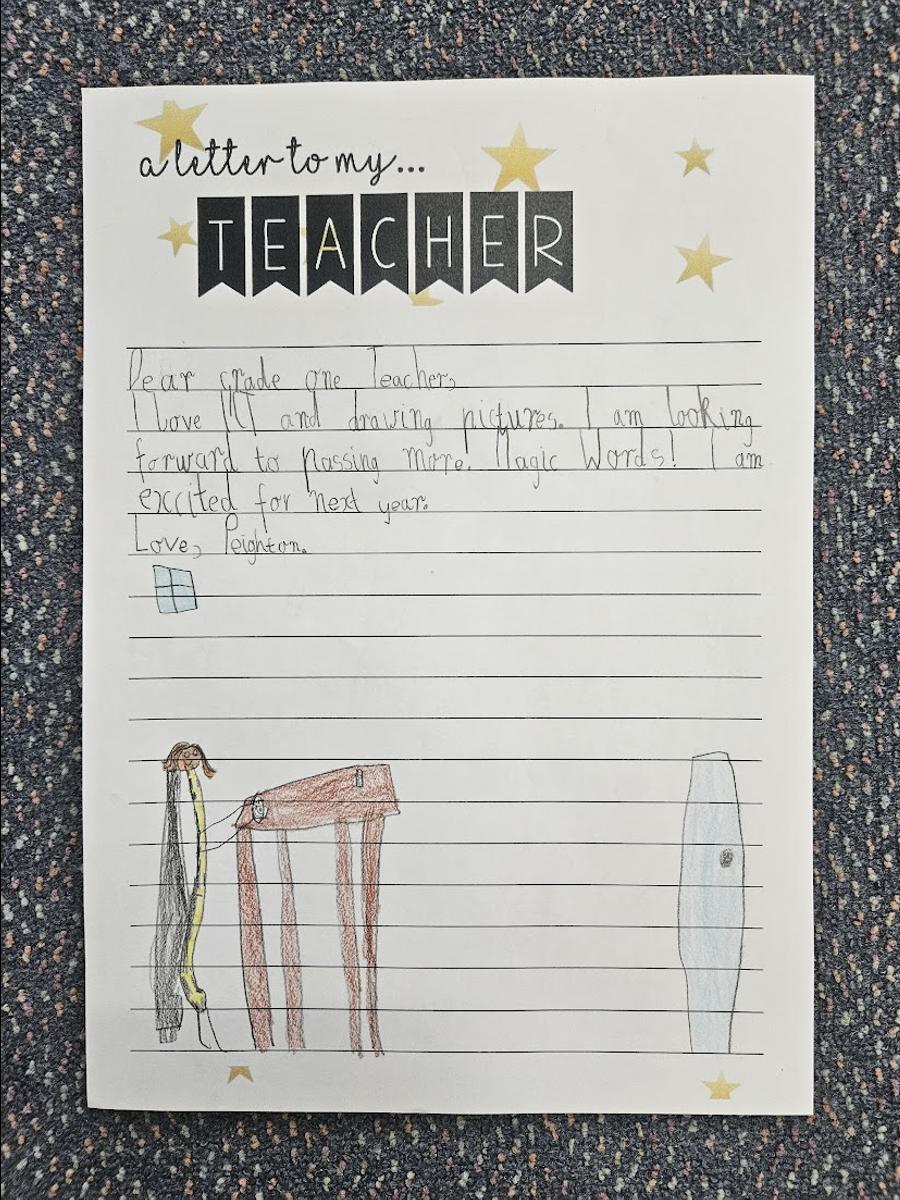 a letter to my...
TEACHER
Dear grade one Teacher,
I Love and drawing pictures. I am looking
forward to passing more! Magic Words! I am
excited for next year.
Love, Peighton.